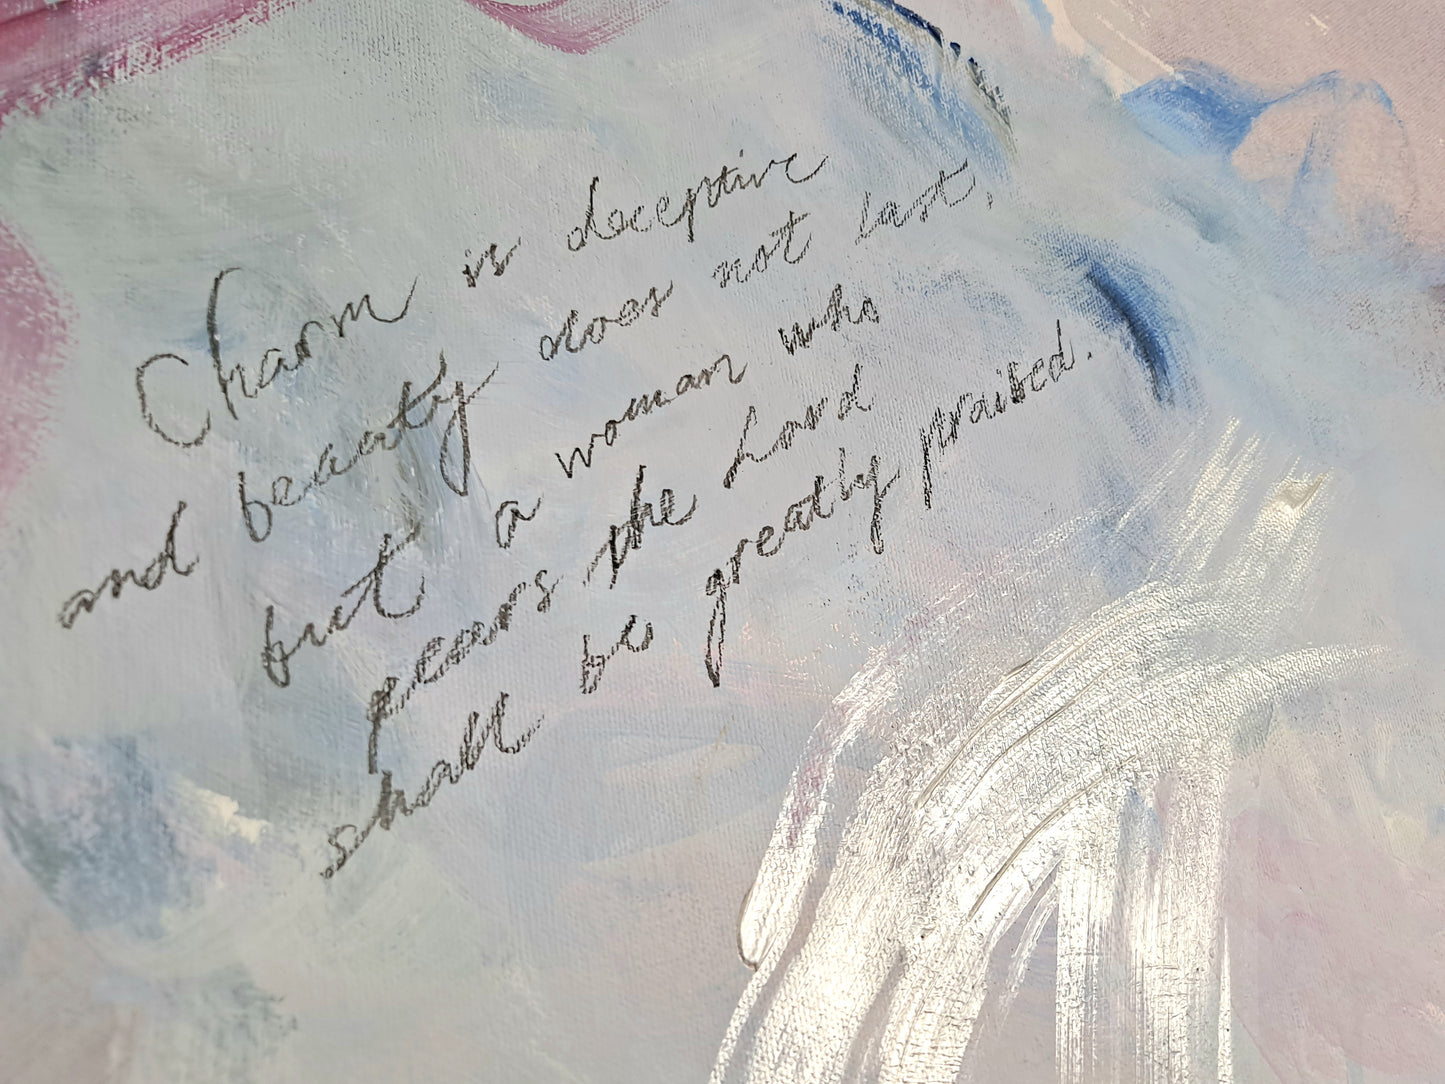 Charm is deceptive
and beauty does not last,
but a woman who
fears the Lord
shall be greatly praised.